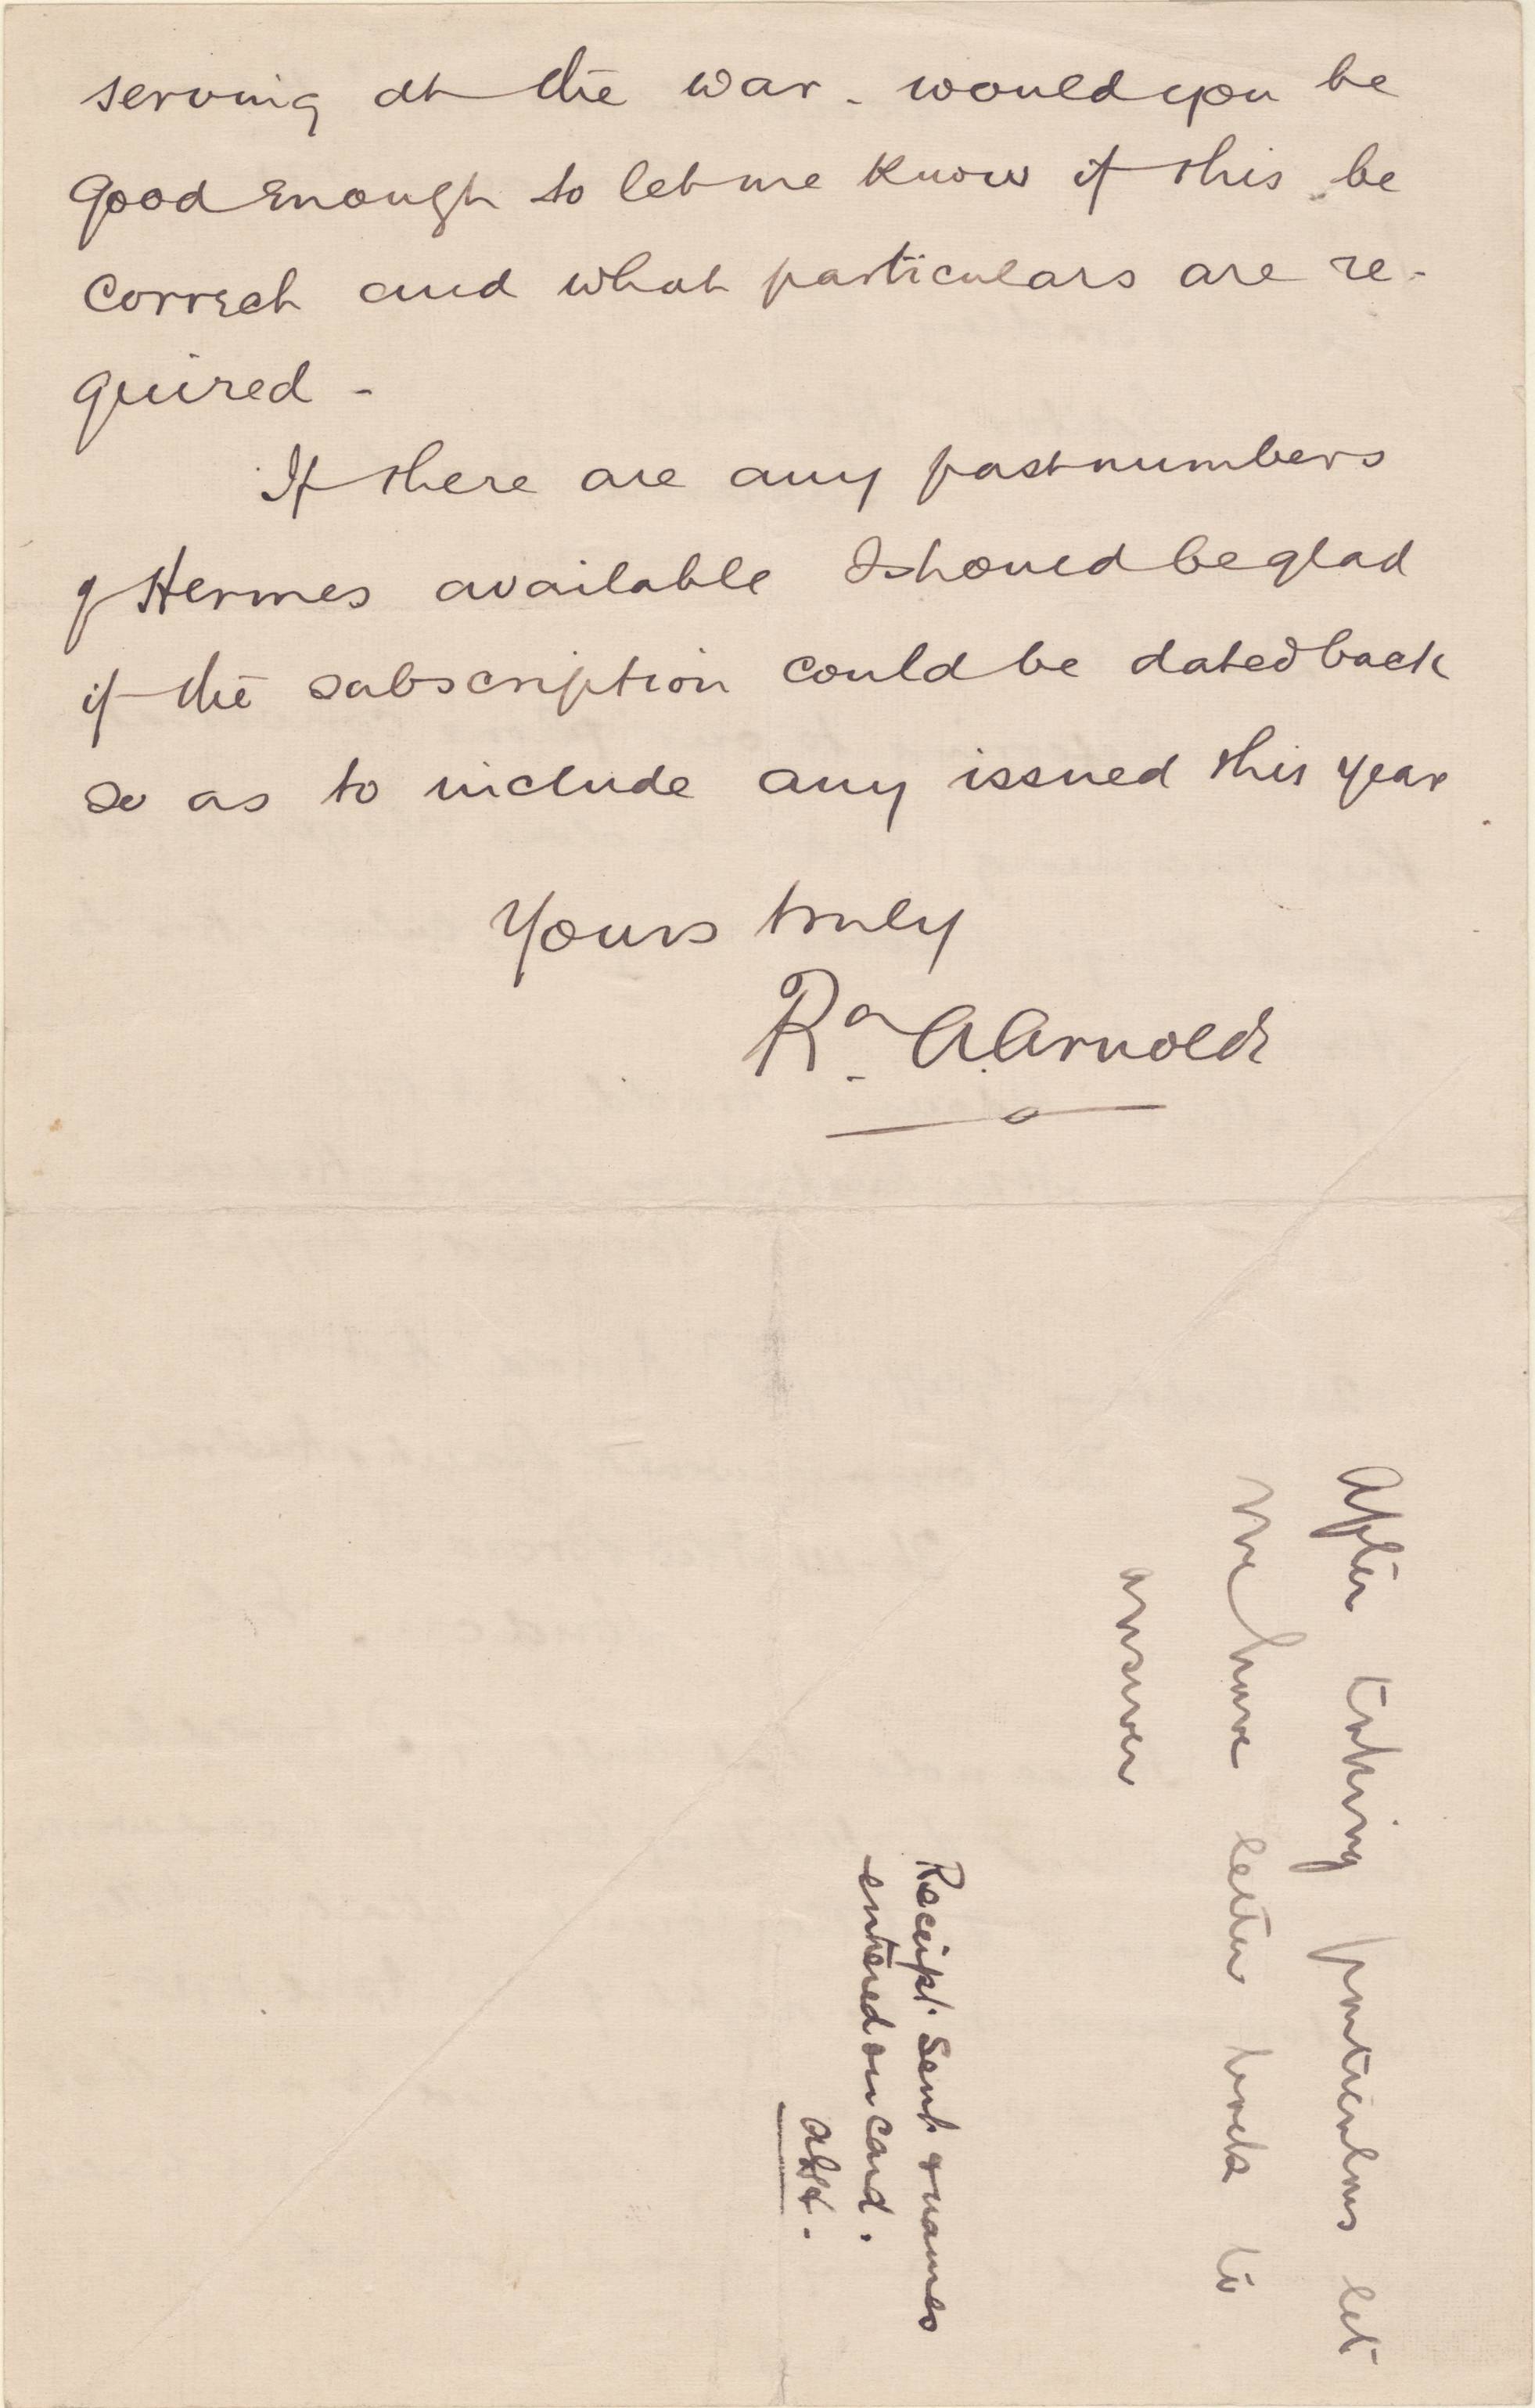 serving at the war - would you be
good enough to let me know if this be
correct and what particulars are re-
quired -
If there are any past numbers
of Hermes available I should be glad
if the subscription could be dated back
so as to include any issued this year
Yours truly
R. A. Arnold
After taking particulars let
me have letter back to
answer
Receipt sent & names
entered on card.